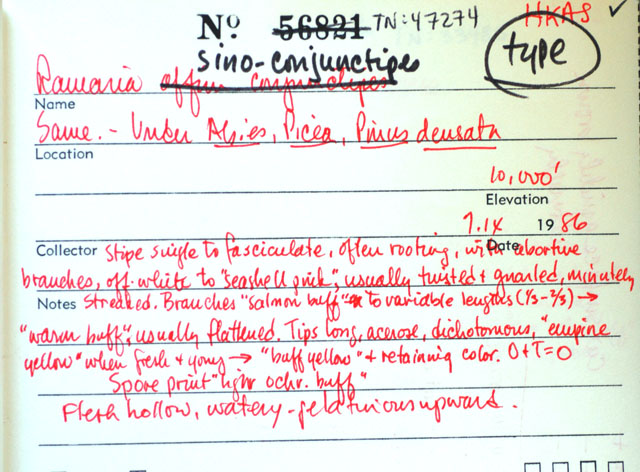 Nº 56821 TN:47274 HKAS ✓
sino-conjunctipes type
Ramaria affin conjunctipes
Name
Same. - Under Abies, Picea, Pinus densata
Location
10,000'
Elevation
7.IX 1986
Date
Collector Stipe single to fasciculate, often rooting, with abortive
branches, off-white to "seashell pink", usually twisted + gnarled, minutely
Notes streaked. Branches "salmon buff" to variable lengths (1/3-2/3) →
"warm buff", usually flattened. Tips long, acerose, dichotomous, "empire
yellow" when fresh + young → "buff yellow" + retaining color. O+T=O
Spore print "light ochr. buff"
Flesh hollow, watery-gelatinous upward.